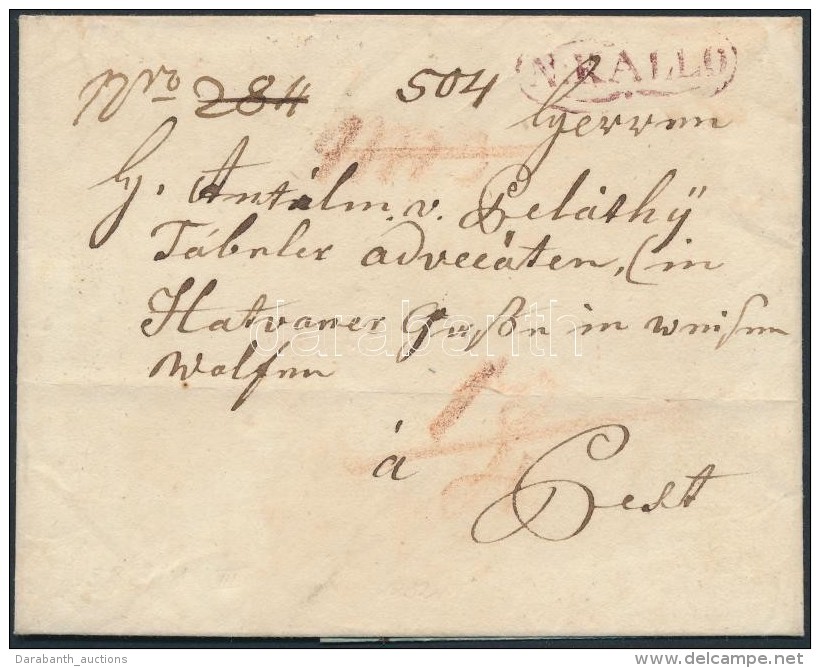 N. KALLÓ
Nro 284 504
Herrn
H. Antal m. v. Peláthÿ
Tabular advocaten, (in
Hatvaner Gaße in weißen
Wolfen
á Pest
Darabanth_auctions
www.delcampe.net